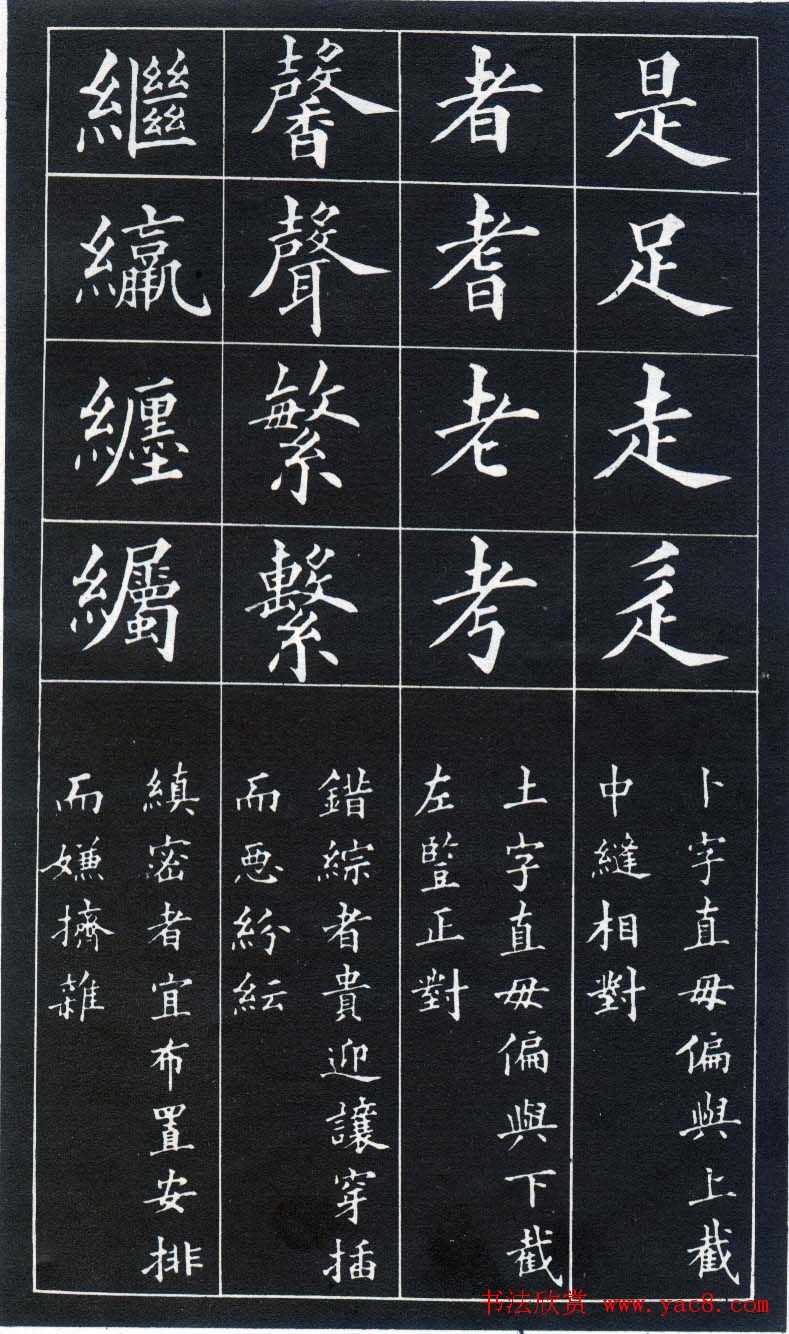 是足走辵
卜字直毋偏與上截
中縫相對
者耆老考
土字直毋偏與下截
左豎正對
馨聲繁繫
錯綜者貴迎讓穿插
而惡紛紜
繼纏
縝密者宜布置安排
而嫌擠雜
书法欣赏 www.yac8.com